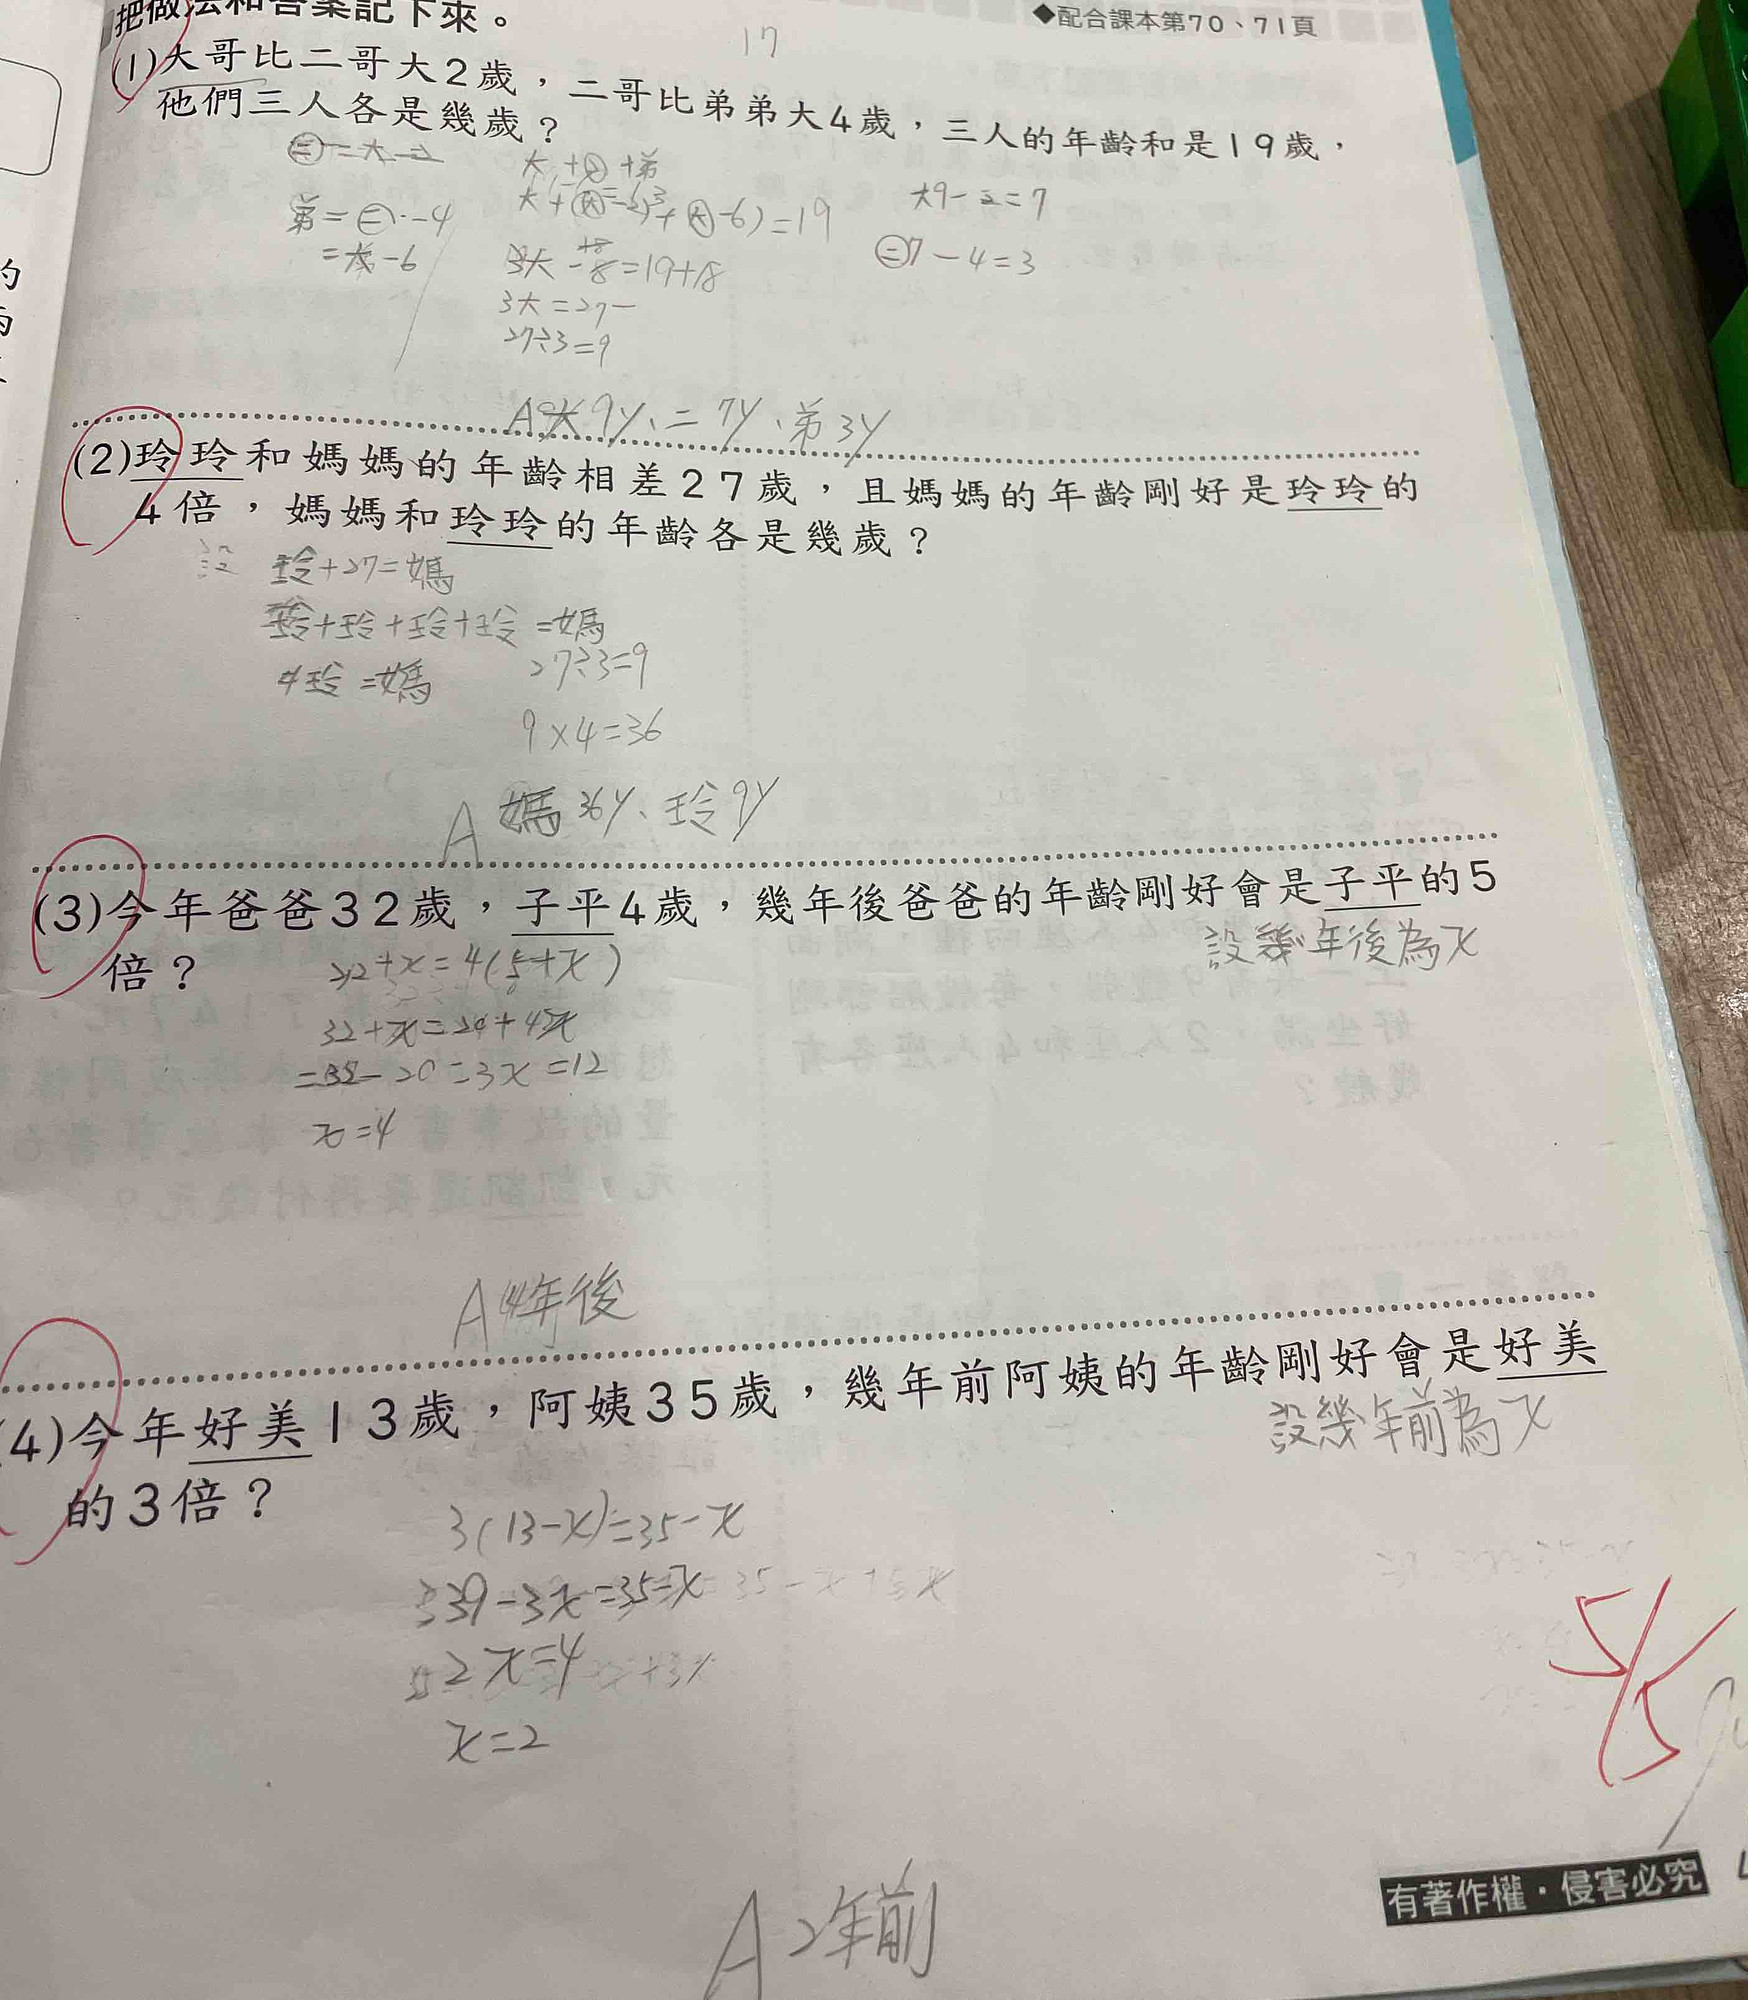 把做法和答案記下來。
◆配合課本第70、71頁
17
(1)大哥比二哥大2歲，二哥比弟弟大4歲，三人的年齡和是19歲，
他們三人各是幾歲？
㊁=大-2
大+㊁+弟
弟=㊁-4
=大-6
大+(大-2)+(大-6)=19
大9-2=7
3大-8=19+8
㊁7-4=3
3大=27
27÷3=9
A大9y、二7y、弟3y
(2)玲玲和媽媽的年齡相差27歲，且媽媽的年齡剛好是玲玲的
4倍，媽媽和玲玲的年齡各是幾歲？
設 玲+27=媽
玲+玲+玲+玲=媽
4玲=媽
27÷3=9
9×4=36
A 媽36y、玲9y
(3)今年爸爸32歲，子平4歲，幾年後爸爸的年齡剛好會是子平的5
倍？
設幾年後為x
32+x=4(5+x)
32+x=20+4x
=32-20=3x=12
x=4
A 4年後
(4)今年好美13歲，阿姨35歲，幾年前阿姨的年齡剛好會是好美
的3倍？
設幾年前為x
3(13-x)=35-x
39-3x=35-x
2x=4
x=2
5/5
A 2年前
有著作權・侵害必究